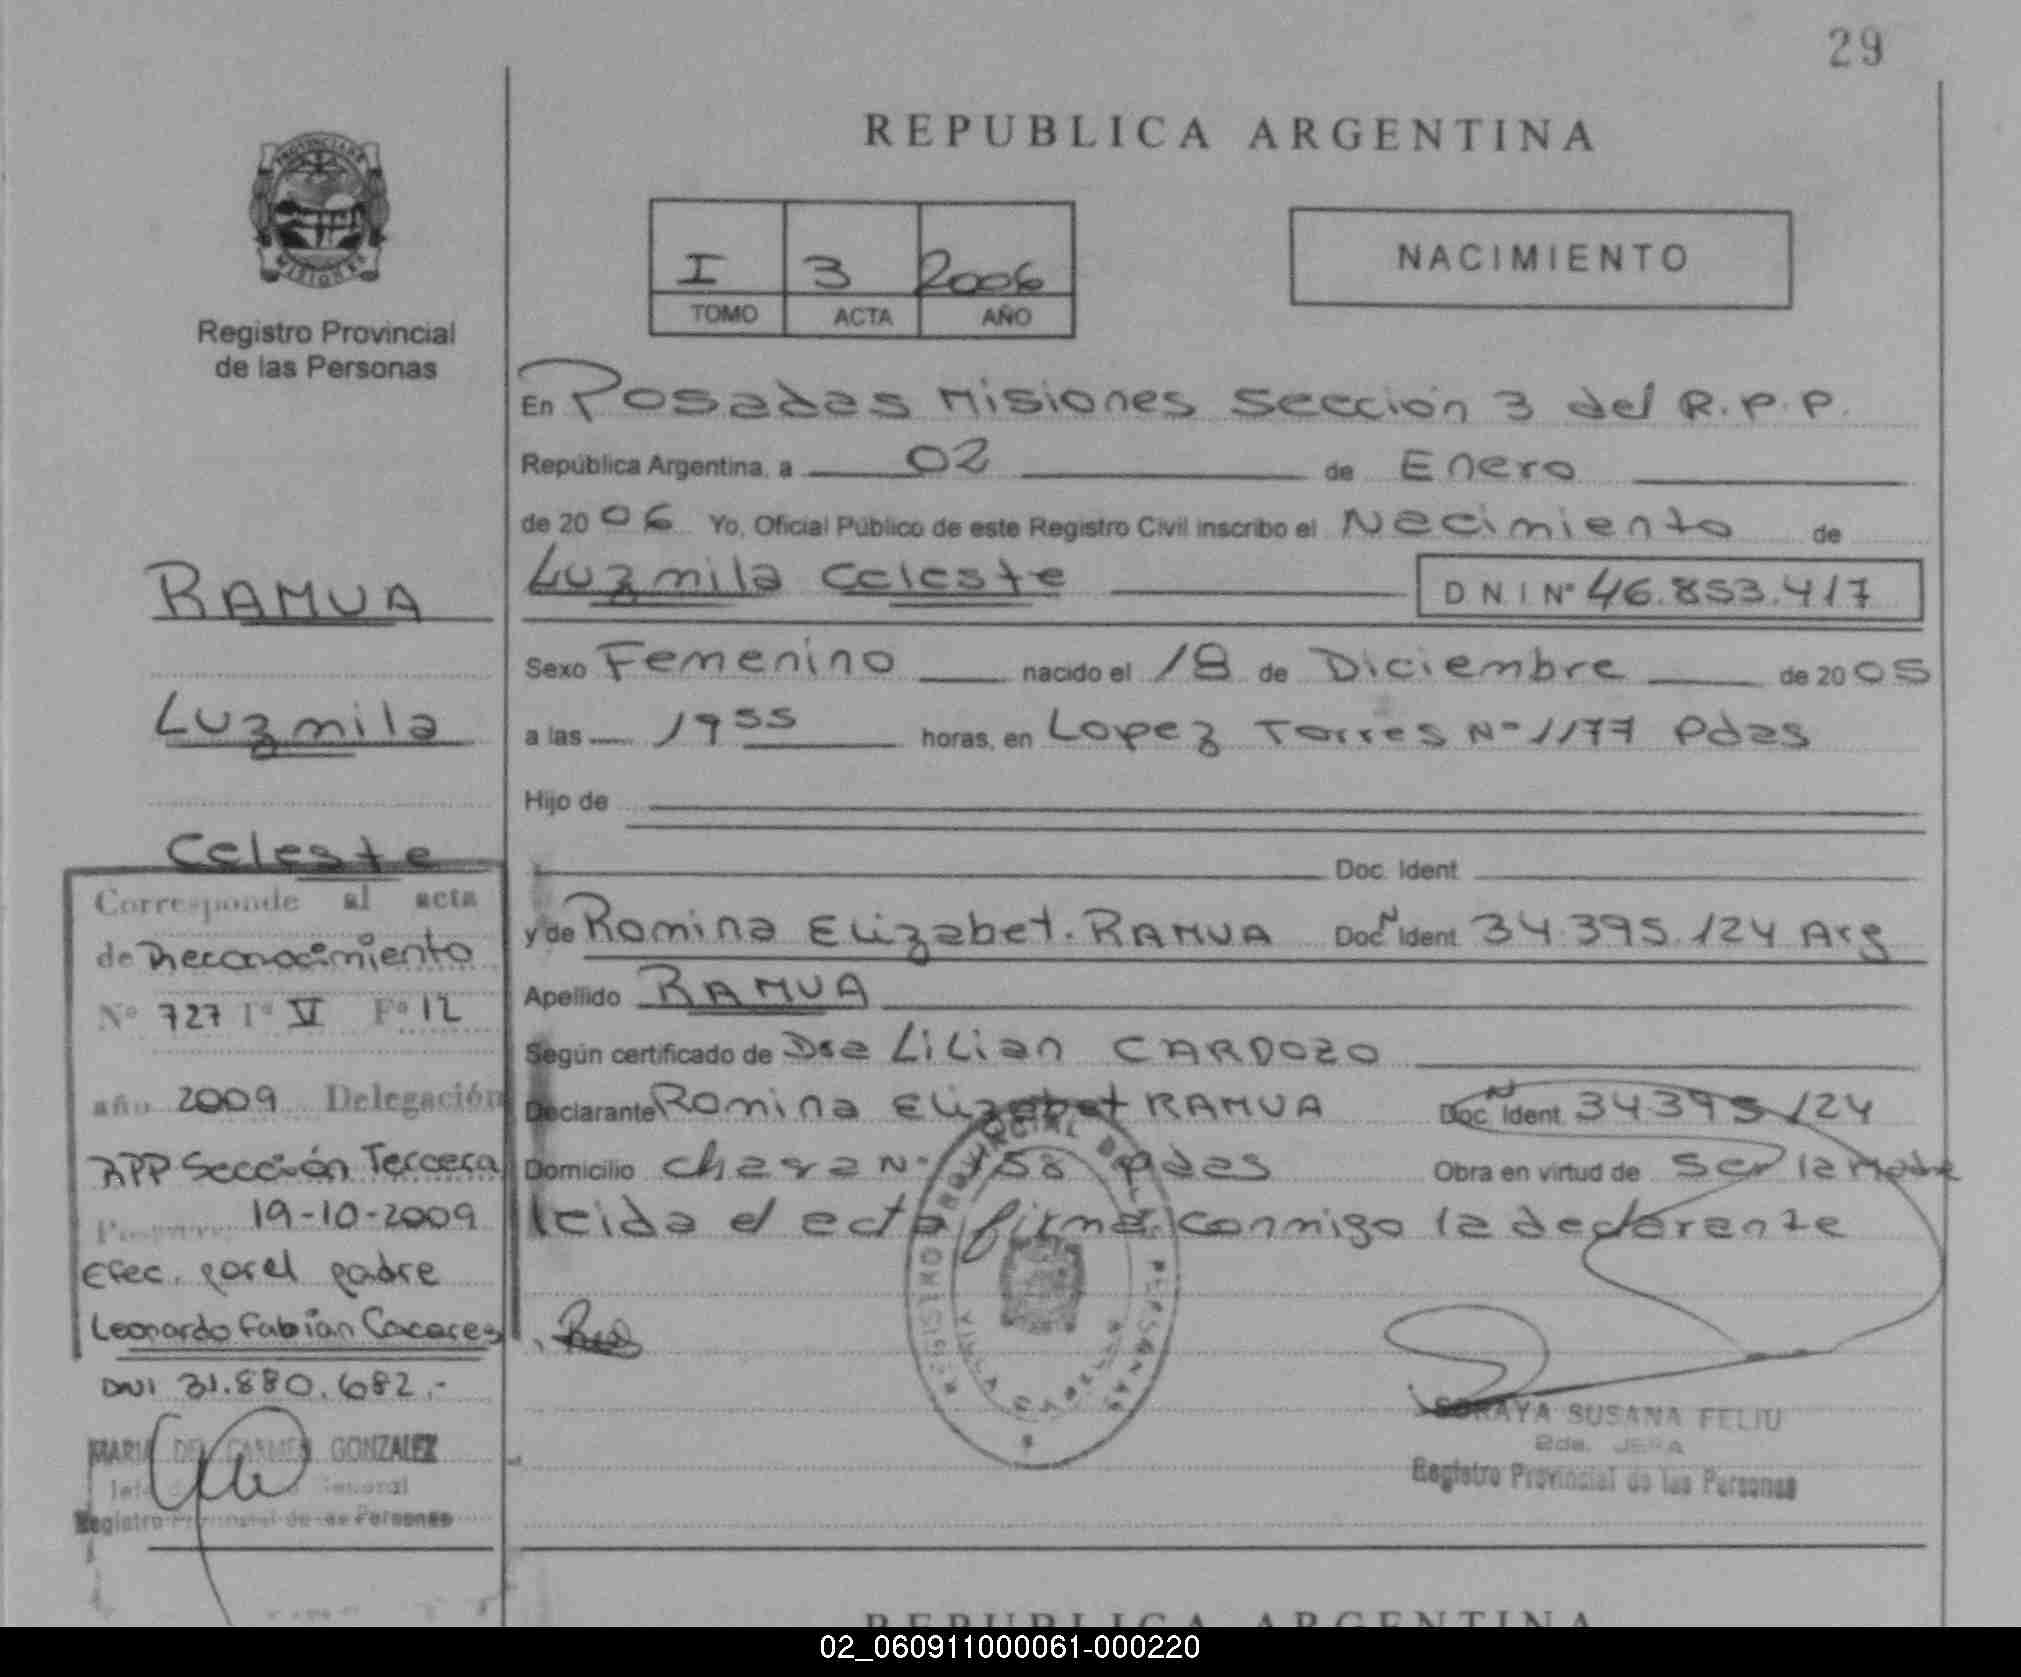 29
REPUBLICA ARGENTINA
PROVINCIA DE
MISIONES
Registro Provincial
de las Personas
I 3 2006
TOMO ACTA AÑO
NACIMIENTO
En Posadas Misiones Sección 3 del R.P.P.
República Argentina, a 02 de Enero
de 2006 Yo, Oficial Público de este Registro Civil inscribo el Nacimiento de
Luzmila Celeste DNI Nº 46.853.417
Sexo Femenino nacido el 18 de Diciembre de 2005
a las 19 55 horas, en Lopez Torres Nº 1177 Pdas
Hijo de
Doc. Ident
y de Romina Elizabet. RAMUA Doc N Ident 34.395.124 Arg
Apellido RAMUA
Según certificado de Dra Lilian CARDOZO
Declarante Romina Elizabet RAMUA Doc N Ident 34395124
Domicilio chacra Nº 158 Pdas Obra en virtud de ser la madre
leida el acta firma conmigo la declarante
RAMUA
Luzmila
Celeste
Corresponde al acta
de Reconocimiento
Nº 727 Tº VI Fº 12
año 2009 Delegación
RPP Sección Tercera
19-10-2009
Efec. por el padre
Leonardo Fabian Caceres
DNI 31.880.682.-
MARIA DEL CARMEN GONZALEZ
General
Registro Provincial de las Personas
REGISTRO PROVINCIAL DE LAS PERSONAS
SORAYA SUSANA FELIU
2da. JEFA
Registro Provincial de las Personas
REPUBLICA ARGENTINA
02_060911000061-000220